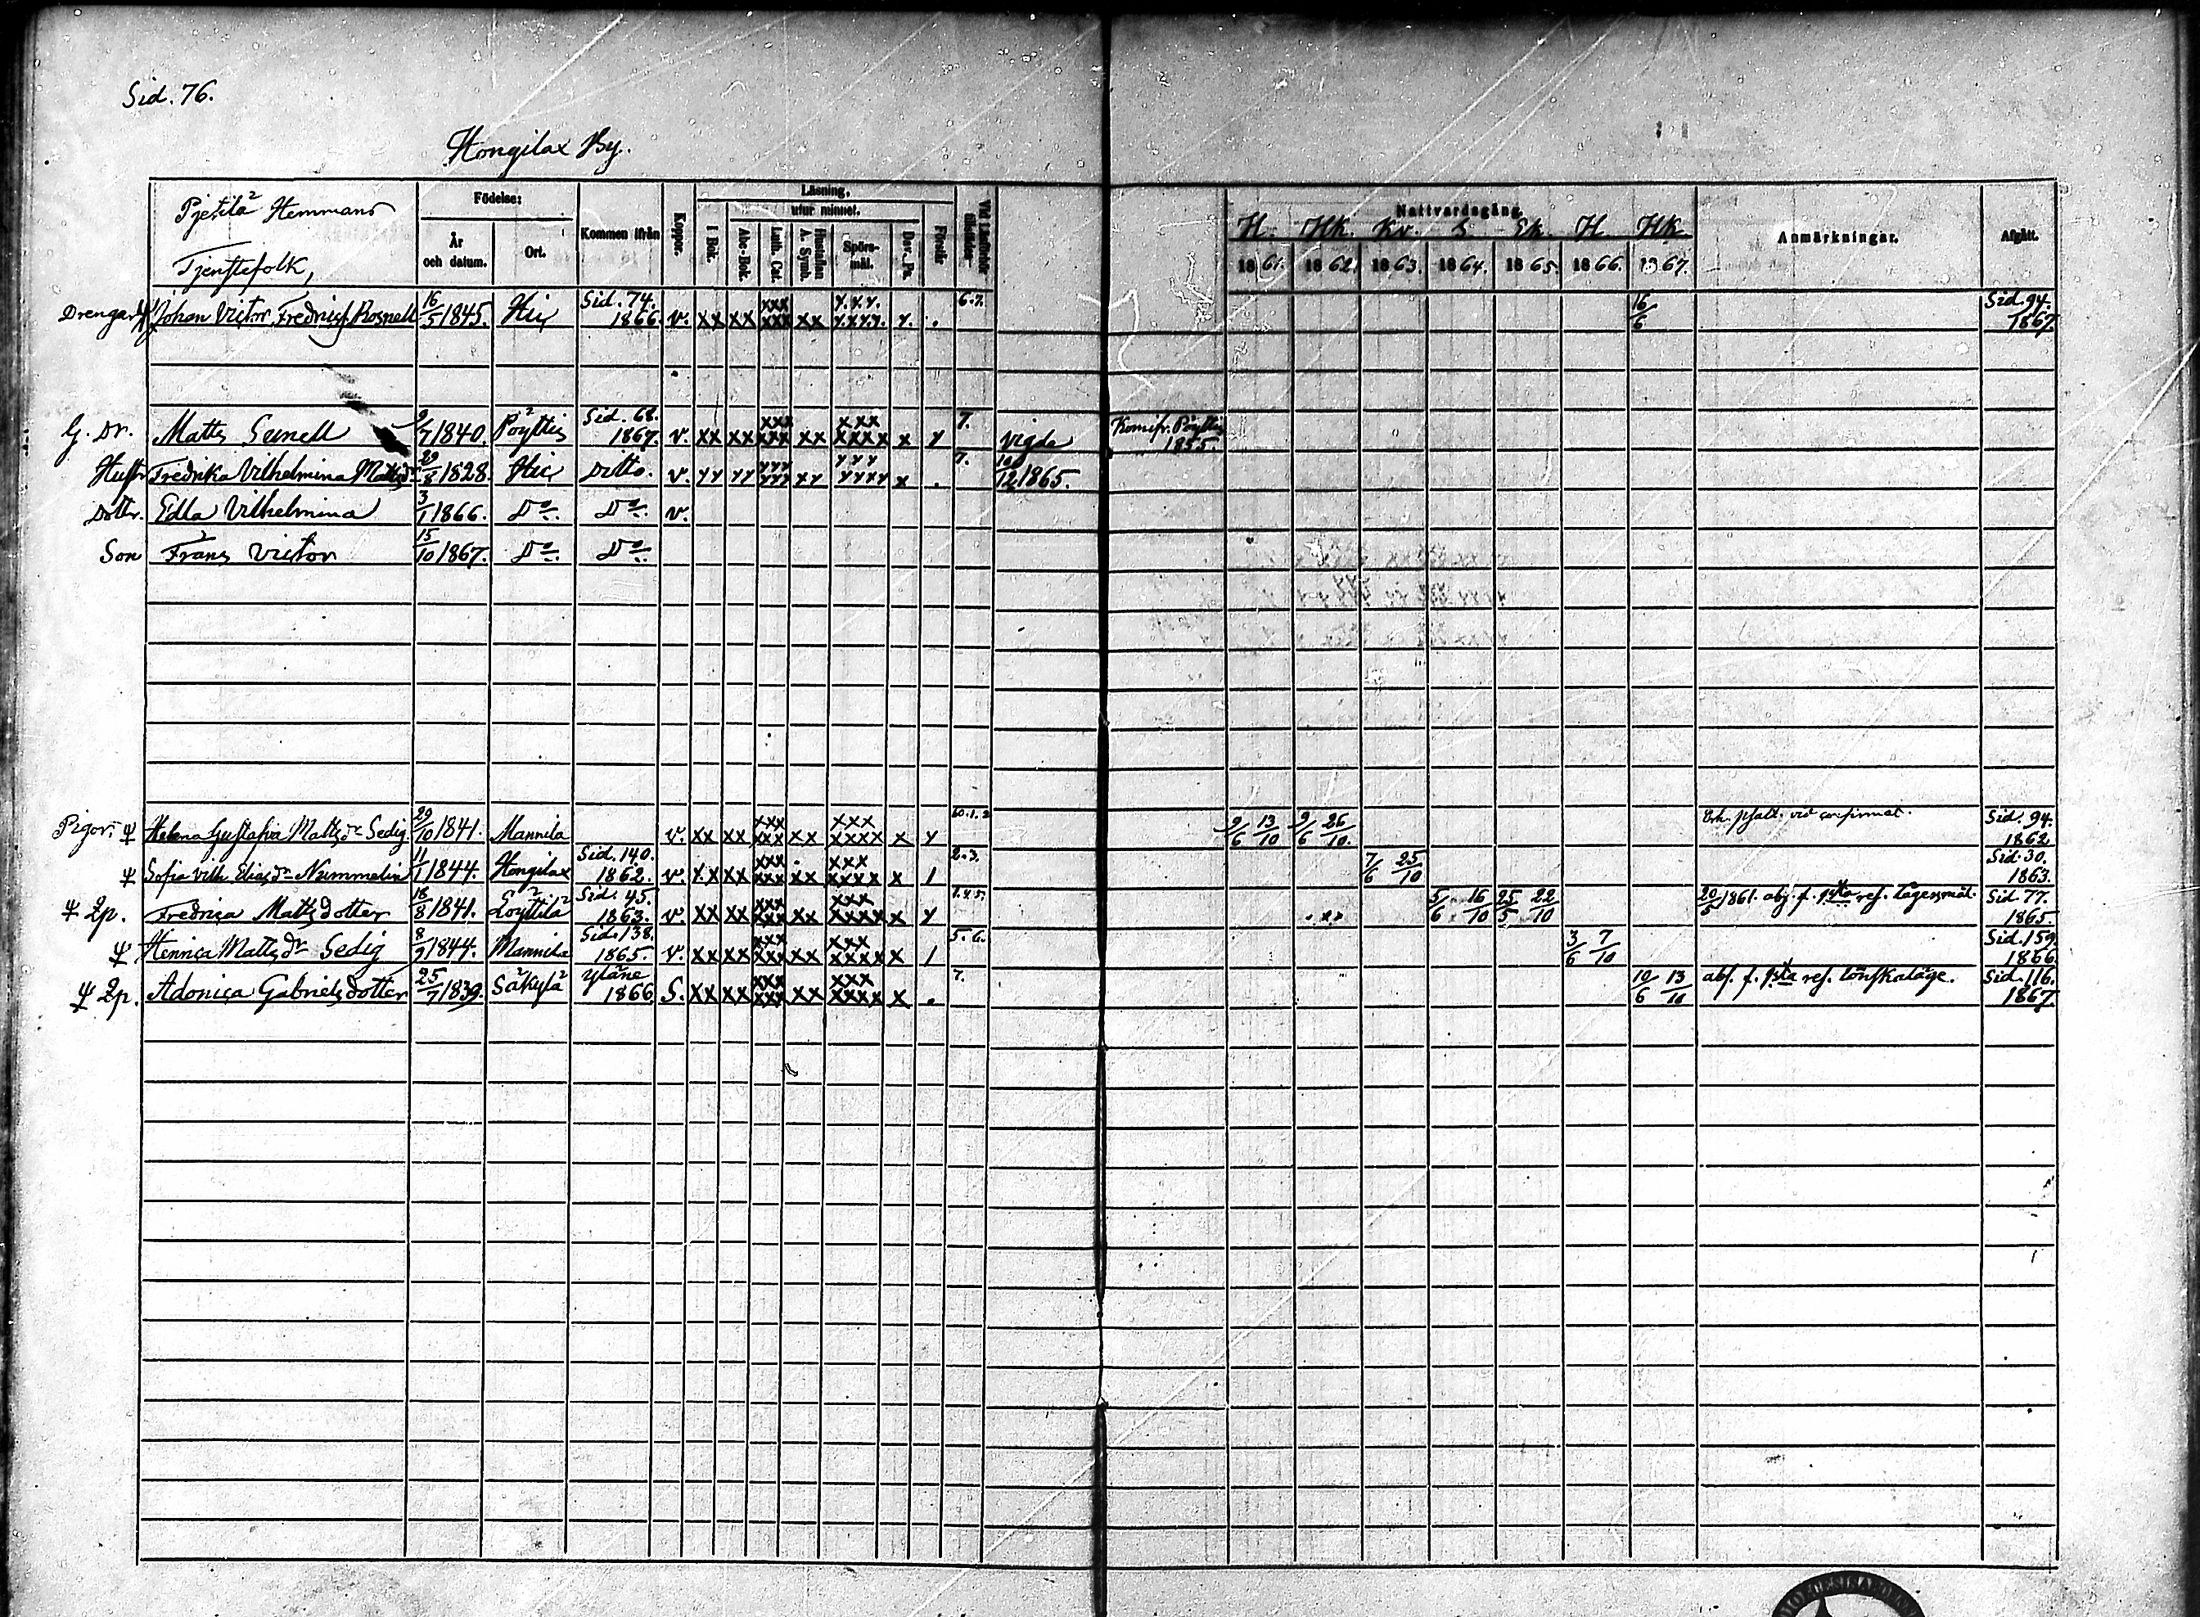 Sid. 76.
Hongilax By.
Pjetilä Hemmans
Tjenstefolk,
Födelse:
År och datum.
Ort.
Kommen ifrån
Koppor.
Läsning,
utur minnet.
I Bok.
Abc-Bok.
Luth. Cat.
Hustaflan A. Symb.
Spörs-mål.
Dav. Ps.
Förstår
Nattvardsgång.
H. Hk. Kv. S. Ek. H Hk
1861. 1862. 1863. 1864. 1865. 1866. 1867.
Anmärkningar.
Afgått.
Drengar Johan Victor Fredricss. Rosnell 16/5 1845. Hic Sid. 74. 1866. v. xx xx xxx xxx xx x.x.x. x.x.x.x. x. . 6.7. 16/6 Sid. 94. 1867.
G. Dr. Matts Sunell 9/7 1840. Pöyttis Sid. 68. 1867. v. xx xx xxx xxx xx xxx xxxx x y 7. vigde Kom. fr. Pöyttis 1855.
Hustr Fredrika Vilhelmina Mattsdr 29/8 1828. Hic Ditto. v. xx xx xxx xxx xx xxx xxxx x . 7. 10/12 1865.
Dotter. Edla Vilhelmina 3/1 1866. Do. Do. v.
Son Frans Victor 15/10 1867. Do. Do.
Pigor: Helena Gustafva Matts dr Sedig. 29/10 1841. Mannila v. xx xx xxx xxx xx xxx xxxx x y 60.1.2 9/6 13/10 9/6 26/10. vid confirmat. Sid. 94. 1862
Sofia Vilh. Elias dr Nummelin 11/1 1844. Hongilax Sid. 140. 1862. v. xx xx xxx xxx xx xxx xxxx x / 2.3. 7/6 25/10 Sid. 30. 1863.
Qp. Fredrica Mattsdotter 18/8 1841. Löyttilä Sid. 45. 1863. v. xx xx xxx xxx xx xxx xxxx x y 1.4.5. 5/6 16/10 25/5 22/10 20/5 1861. abs. f. 1sta res. lägersmål. Sid. 77. 1865.
Henrica Matts dr Sedig 8/9 1844. Mannila Sid. 138. 1865. v. xx xx xxx xxx xx xxx xxxx x / 5.6. 3/6 7/10 Sid. 159. 1866
Qp. Adonica Gabrielsdotter 25/7 1839. Säkylä Yläne 1866. S. xx xx xxx xxx xx xxx xxxx x . 7. 10/6 13/10 abs. f. 1sta res. lönskaläge. Sid. 116. 1867.